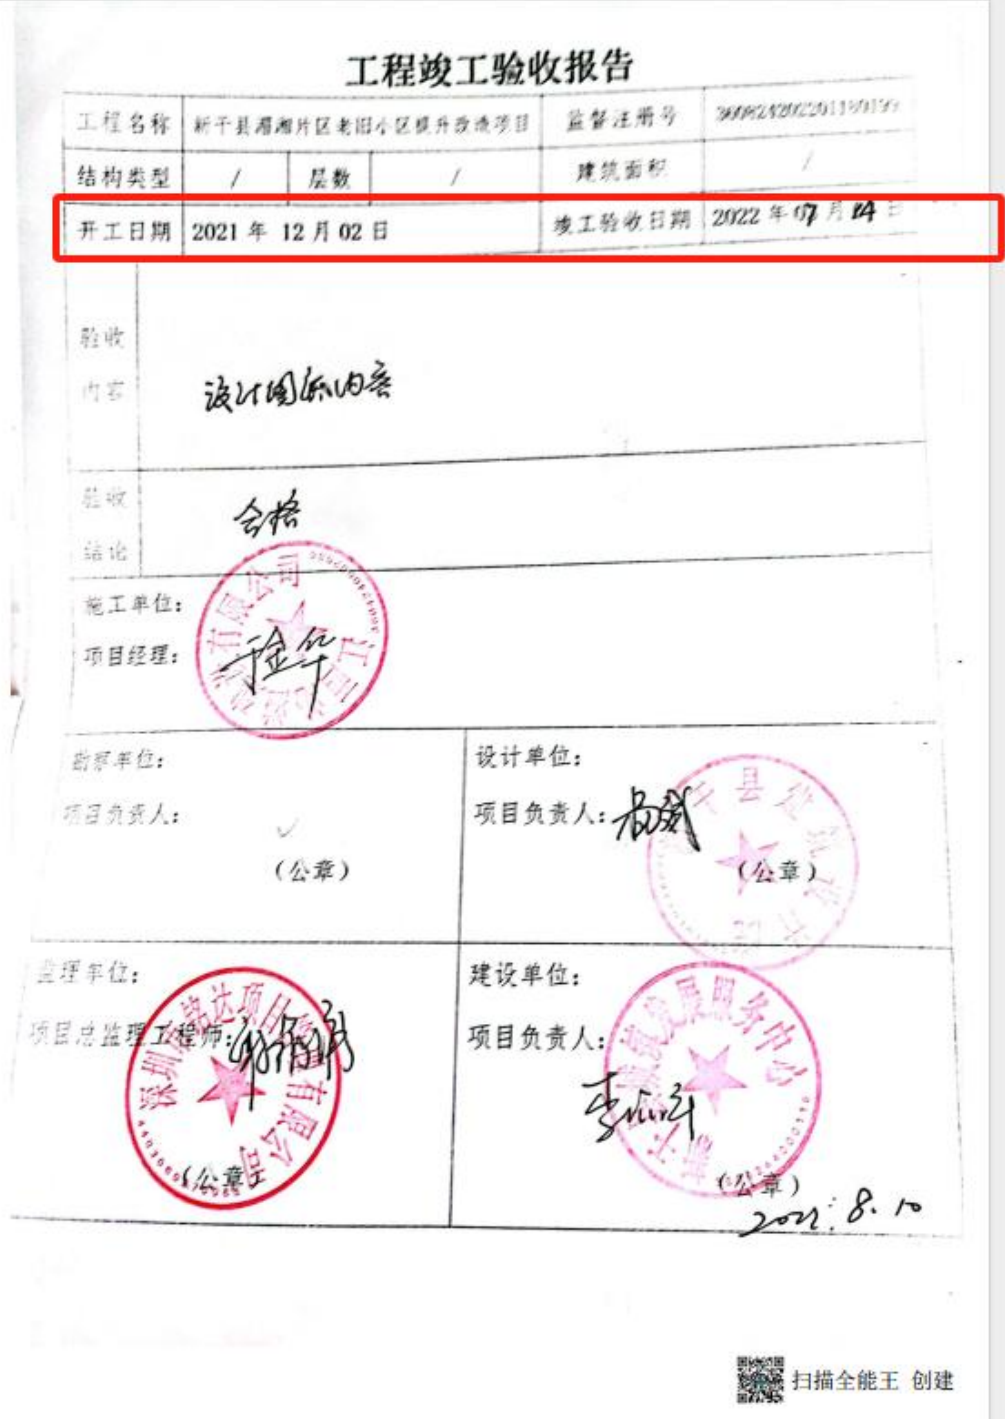 工程竣工验收报告
工程名称 新干县湄湘片区老旧小区提升改造项目 监督注册号
结构类型 / 层数 / 建筑面积 /
开工日期 2021 年 12 月 02 日 竣工验收日期 2022 年 07 月 14 日
验收
内容
设计图纸内容
验收
结论
合格
施工单位：
项目经理：
勘察单位：
项目负责人：
（公章）
设计单位：
项目负责人：
（公章）
监理单位：
项目总监理工程师：
（公章）
建设单位：
项目负责人：
（公章）
2022.8.10
扫描全能王 创建